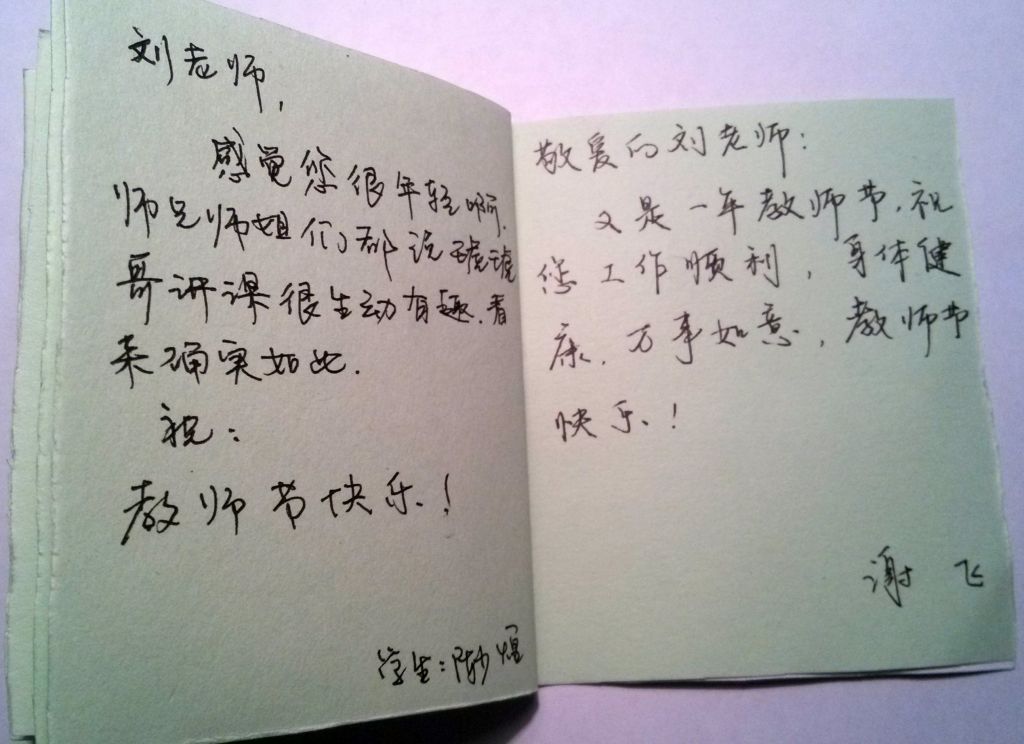 刘老师,
感觉您很年轻啊,
师兄师姐们都说琥琥
哥讲课很生动有趣,看
来确实如此.
祝:
教师节快乐!
学生:陈少煌
敬爱的刘老师:
又是一年教师节,祝
您工作顺利,身体健
康,万事如意,教师节
快乐!
谢飞